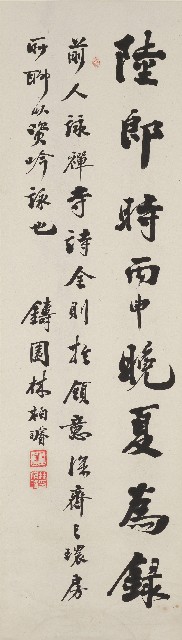 陸郎時丙申晚夏為錄
前人詠禪寺詩全則於領意深齋之環房
所聊以資吟詠也
鑄園林柏璿